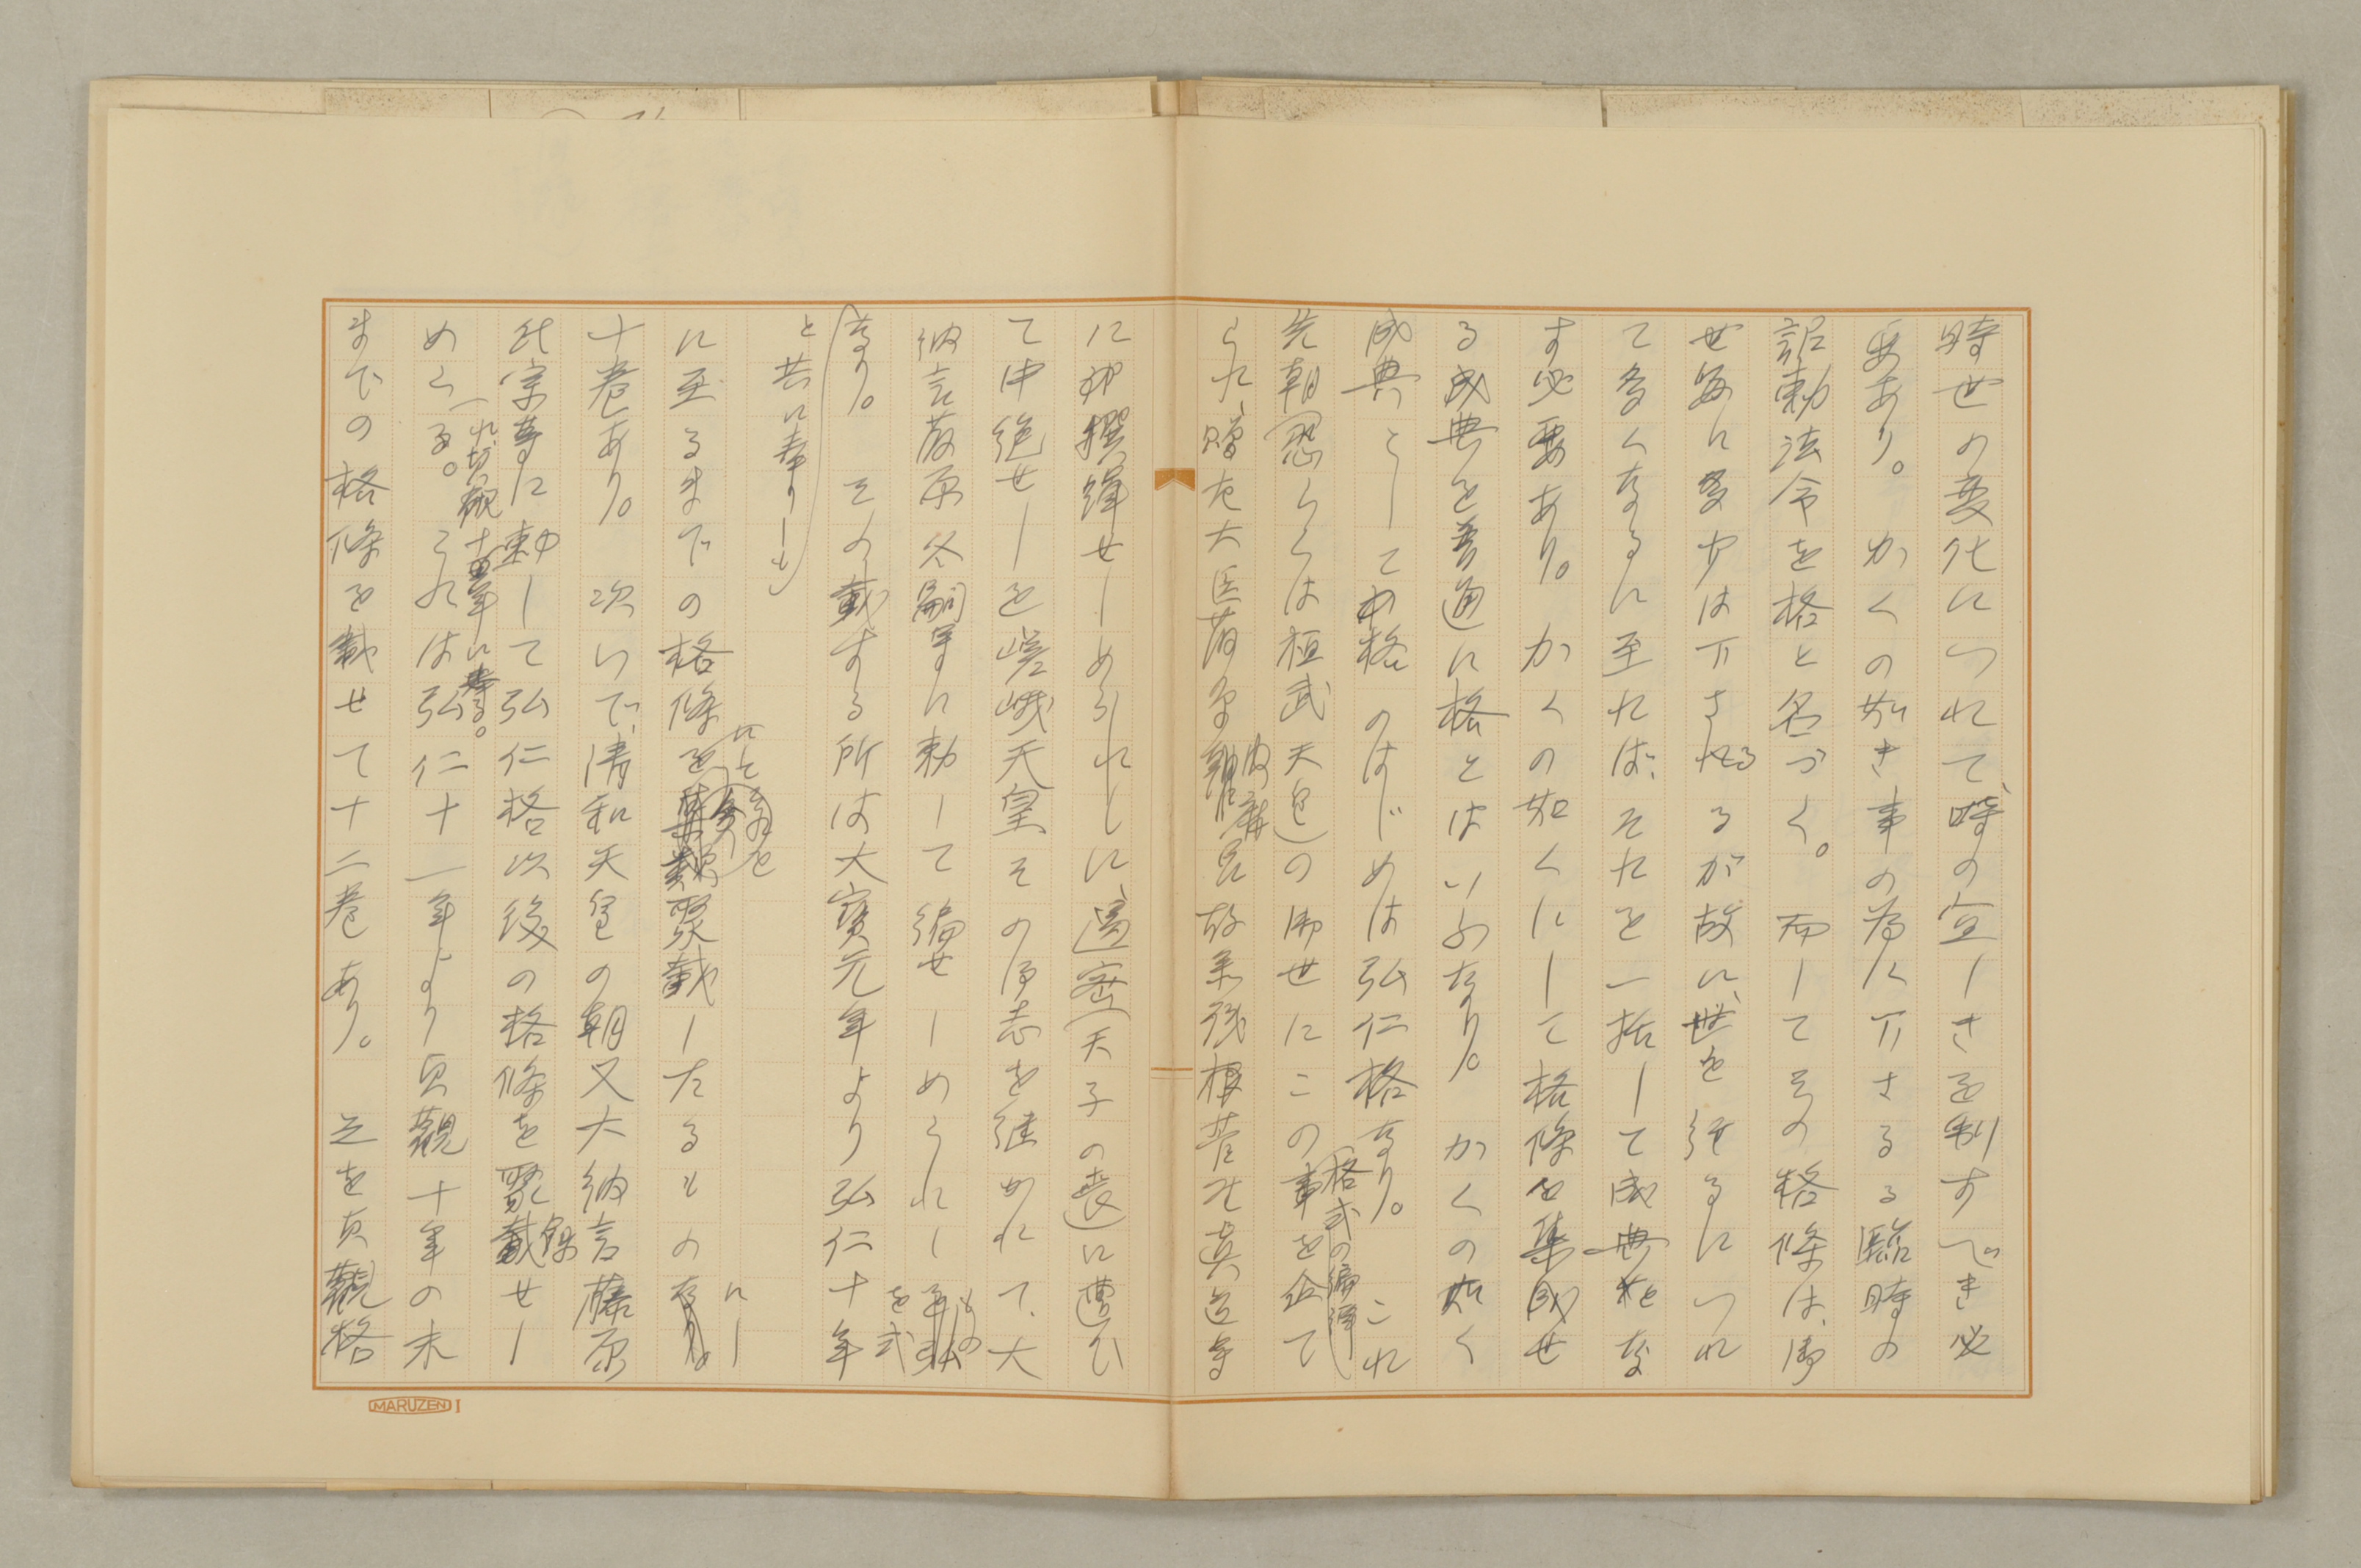 時世の変化につれて、時の宜しきを制すべき必
要あり。かくの如き事の為に下さるる臨時の
詔勅法令を格と名づく。而してその格條は、御
世毎に多少は下さるるが故に、世を経るにつれ
て多くなるに至れば、それを一括して成典をな
す必要あり。かくの如くにして格條を集成せ
る成典を普通に格とはいふなり。かくの如く
成典としての格のはじめは弘仁格なり。これ
格式の編纂
先朝恐らくは桓武天皇の御世にこの事を企て
られ、贈左大臣藤原内麻呂故参議菅野朝臣真道等
に神撰緝せしめられしに遏密(天子の喪)に遭ひ
て中絶せしを嵯峨天皇その御志を継がれて、大
納言藤原冬嗣等に勅して編せしめられしもの
なり。その載する所は大寶元年より弘仁十年
を式
と共に奉りしも
に至るまでの格條を類聚載したるものなり。
にし
十巻あり。次いで、清和天皇の朝又大納言藤原
氏宗等に勅して弘仁格以後の格條を聚録せし
れ、貞観十一年に奉る。
める。これは弘仁十一年より貞觀十年の末
までの格條を載せて十二巻あり。之を貞觀格
MARUZEN I